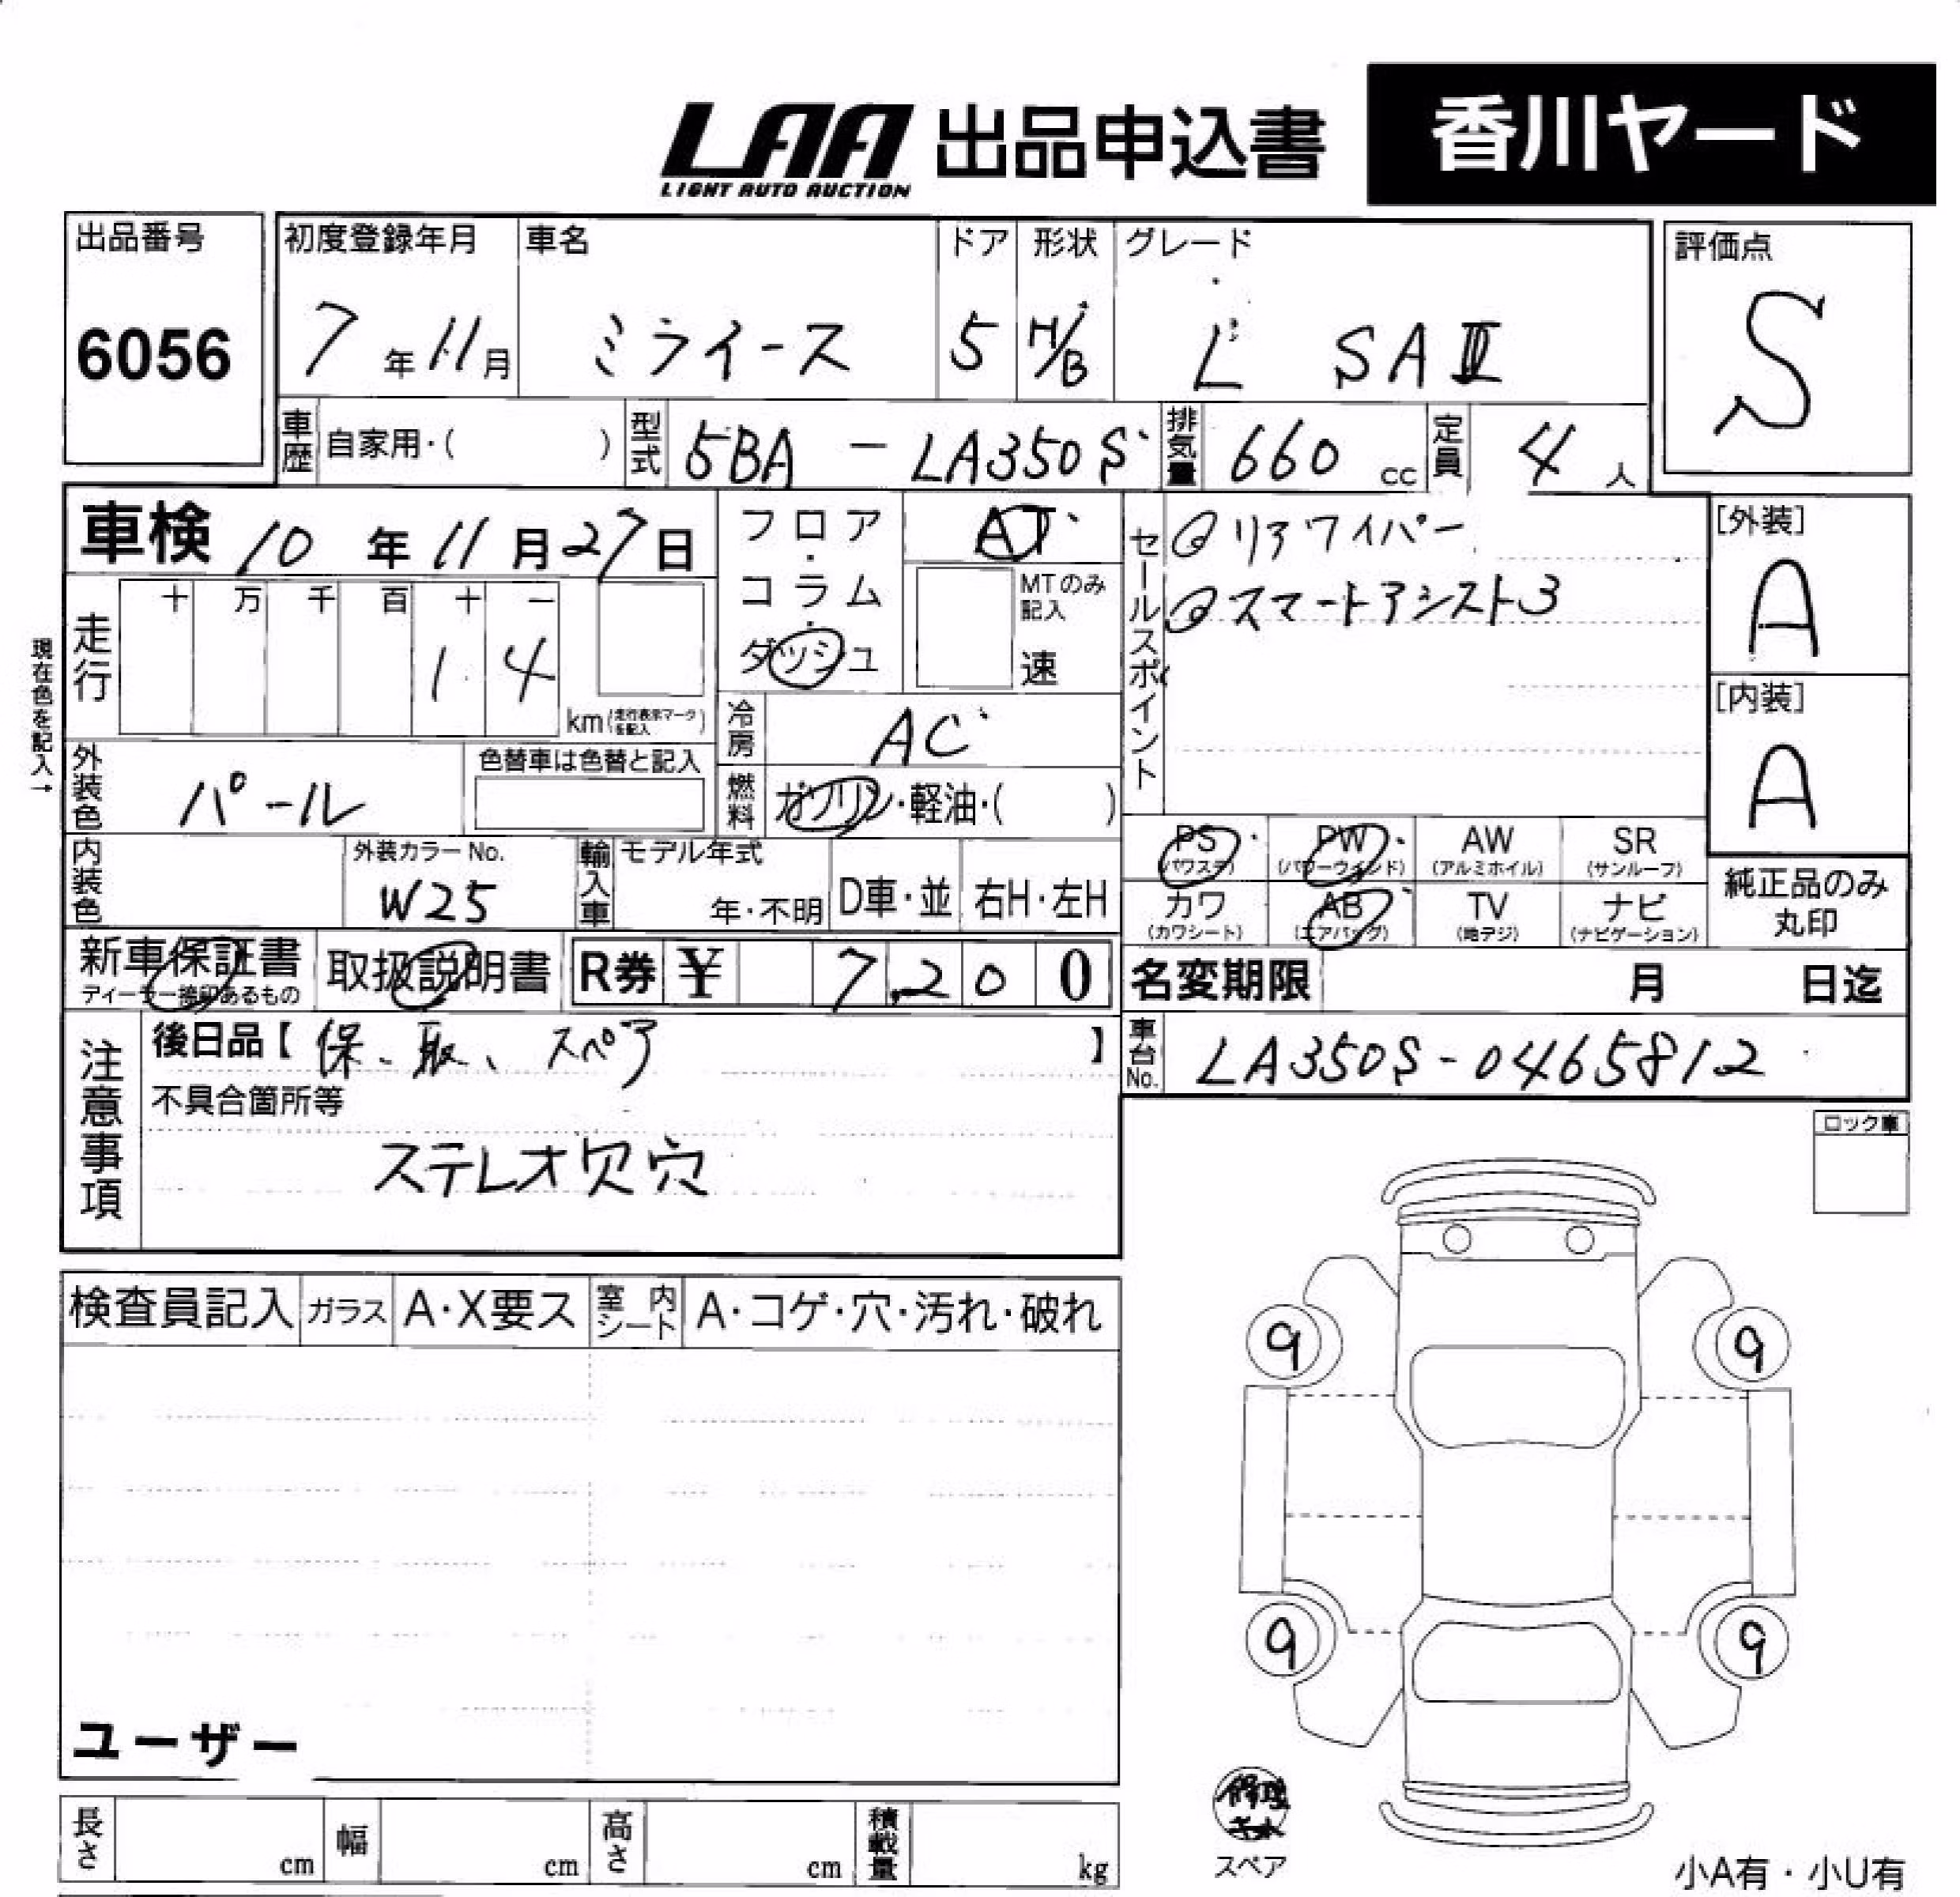 LAA 出品申込書 香川ヤード
LIGHT AUTO AUCTION
出品番号 初度登録年月 車名 ドア 形状 グレード 評価点
6056 7年11月 ミライース 5 H/B L SAⅢ S
車歴 自家用・( ) 型式 5BA-LA350S 排気量 660 cc 定員 4人
車検 10年11月27日 フロア・コラム・ダッシュ AT
MTのみ記入
速
セールスポイント
リアワイパー
スマートアシスト3
[外装]
A
[内装]
A
現在色を記入→
走行 十 万 千 百 十 一
1 4
km(走行表示マークを記入)
冷房 AC
外装色 パール 色替車は色替と記入
燃料 ガソリン・軽油・( )
PS(パワステ) PW(パワーウインド) AW(アルミホイル) SR(サンルーフ)
内装色 外装カラーNo. W25 輸入車 モデル年式 年・不明 D車・並 右H・左H
カワ(カワシート) AB(エアバッグ) TV(地デジ) ナビ(ナビゲーション)
純正品のみ
丸印
新車保証書 取扱説明書 R券 ¥ 7,200
ディーラー捺印あるもの
名変期限 月 日迄
注意事項 後日品【 保、取、スペア 】
車台No. LA350S-0465812
不具合箇所等
ステレオ欠穴
ロック車
検査員記入 ガラス A・X要ス 室内シート A・コゲ・穴・汚れ・破れ
9 9
9 9
ユーザー
修理キット
スペア
長さ cm 幅 cm 高さ cm 積載量 kg
小A有・小U有